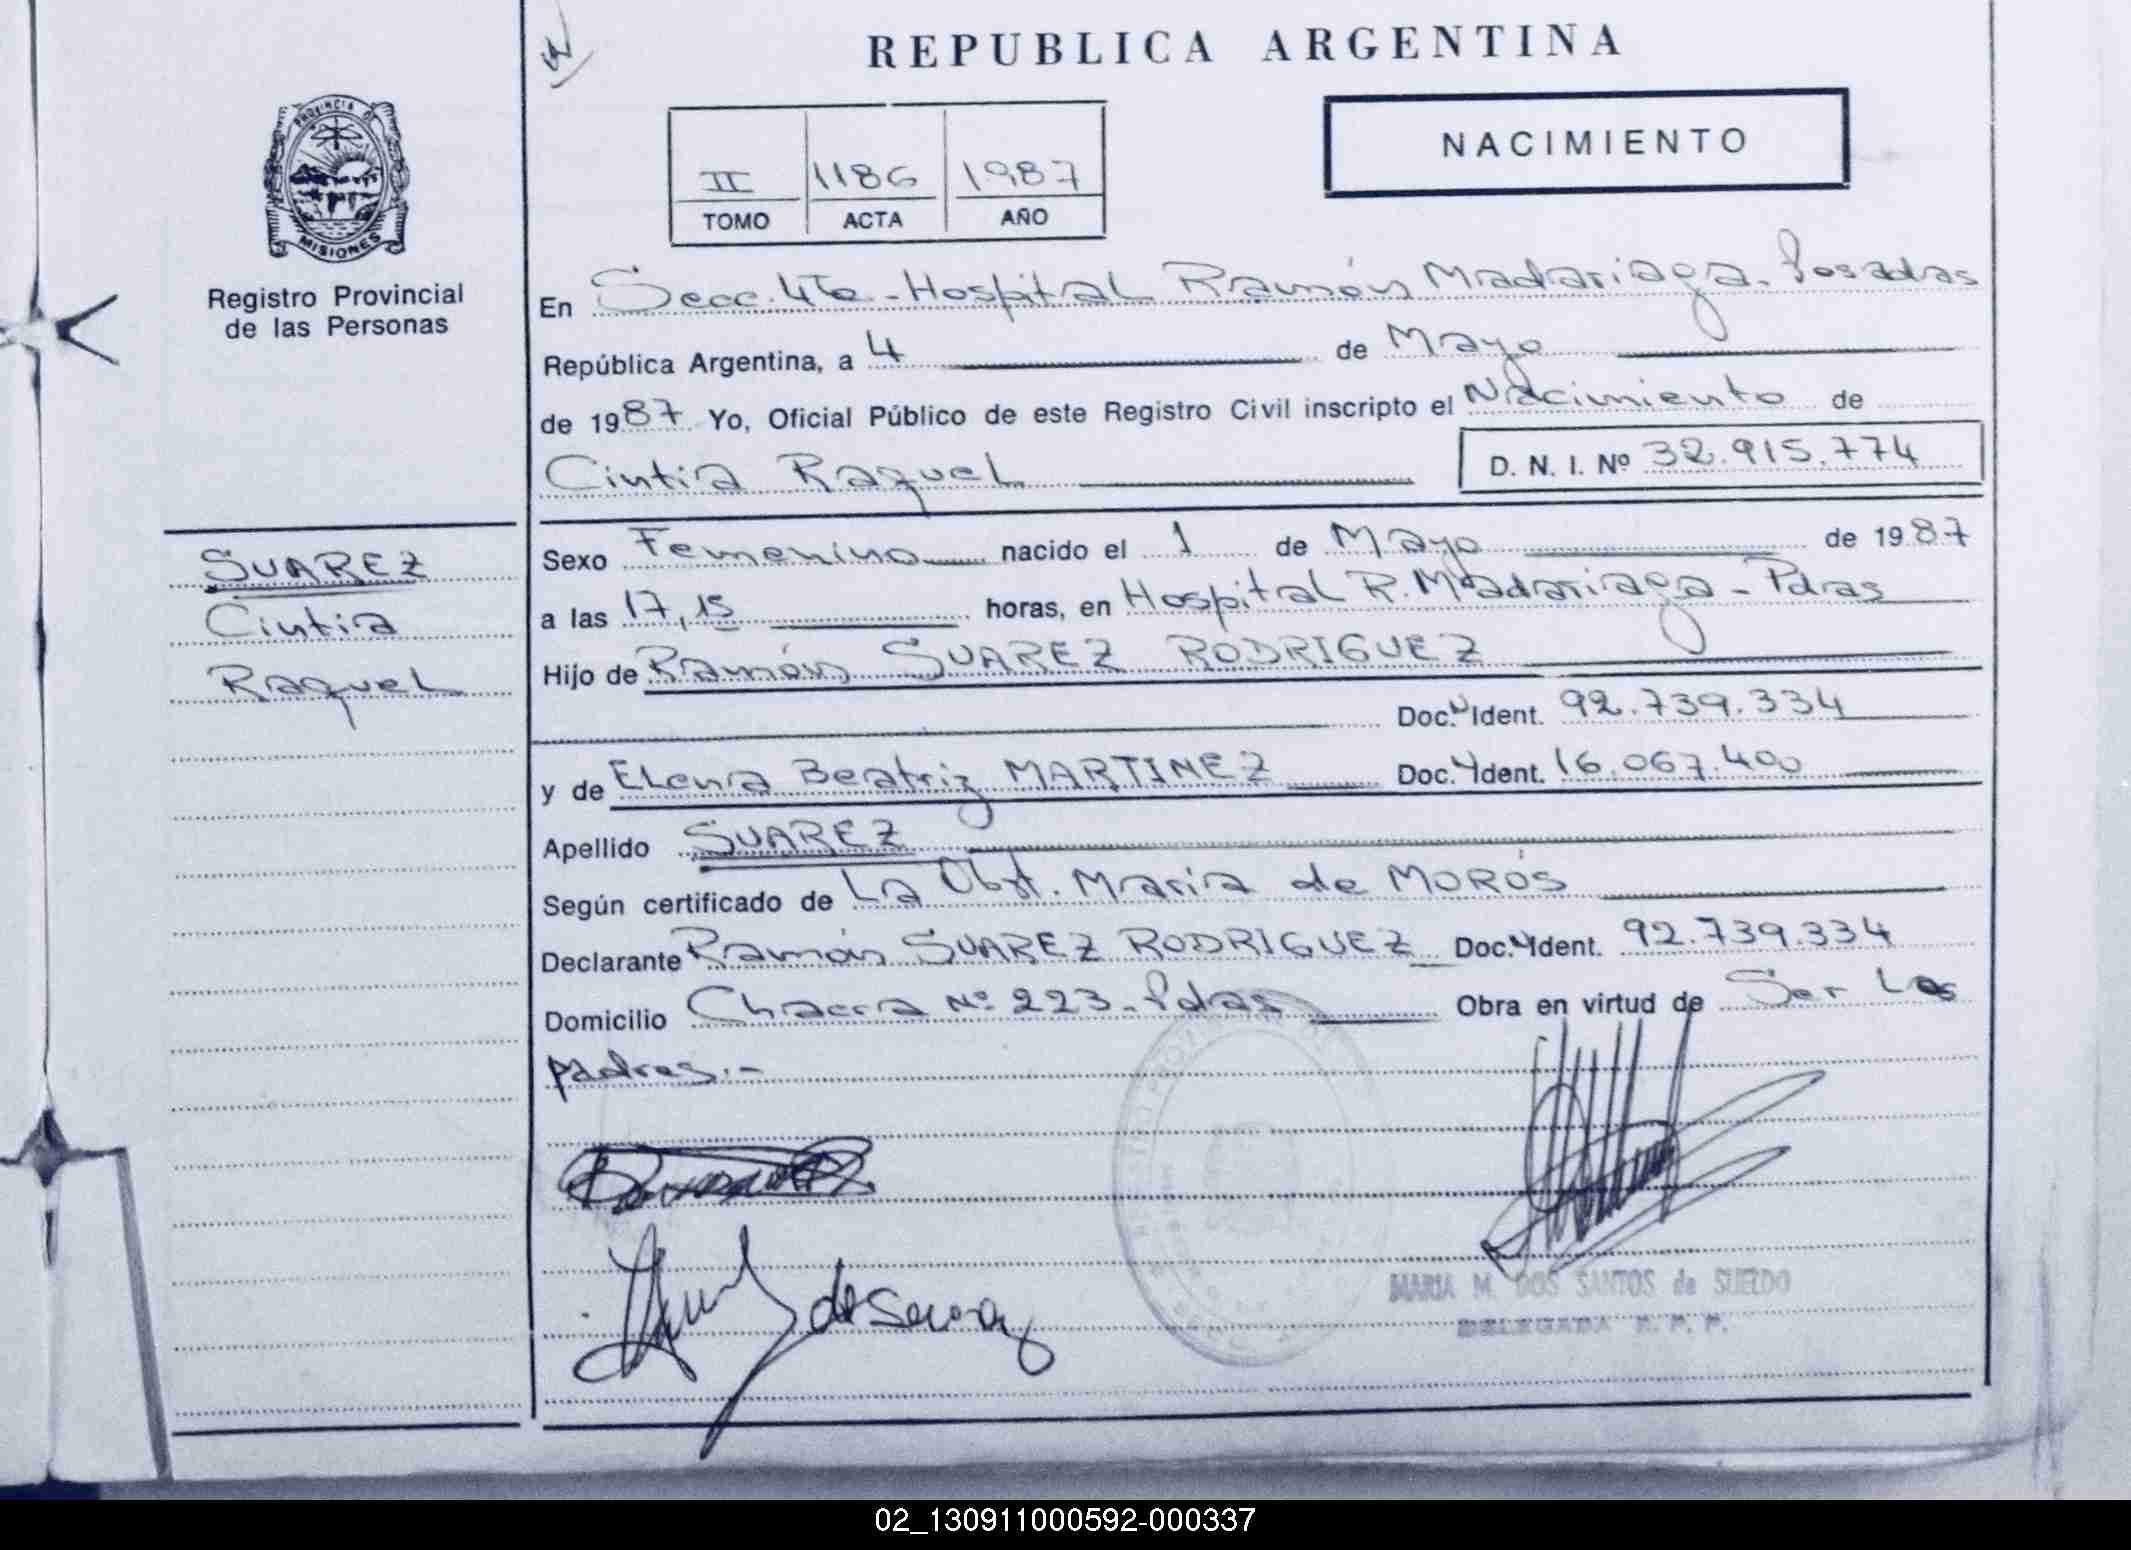 REPUBLICA ARGENTINA
PROVINCIA DE
MISIONES
Registro Provincial
de las Personas
NACIMIENTO
II 1186 1987
TOMO ACTA AÑO
En Secc. 4ta - Hospital Ramón Madariaga - Posadas
República Argentina, a 4 de Mayo
de 1987 Yo, Oficial Público de este Registro Civil inscripto el Nacimiento de
Cintia Raquel D. N. I. Nº 32.915.774
SUAREZ
Cintia
Raquel
Sexo Femenino nacido el 1 de Mayo de 1987
a las 17,15 horas, en Hospital R. Madariaga - Pdas
Hijo de Ramón SUAREZ RODRIGUEZ
Doc. Ident. 92.739.334
y de Elena Beatriz MARTINEZ Doc. Ident. 16.067.400
Apellido SUAREZ
Según certificado de La Obst. Maria de MORÓS
Declarante Ramón SUAREZ RODRIGUEZ Doc. Ident. 92.739.334
Domicilio Chacra Nº 223 - Pdas Obra en virtud de Ser Los
padres.-
MARIA M. DOS SANTOS de SUELDO
DELEGADA R. P. P.
02_130911000592-000337